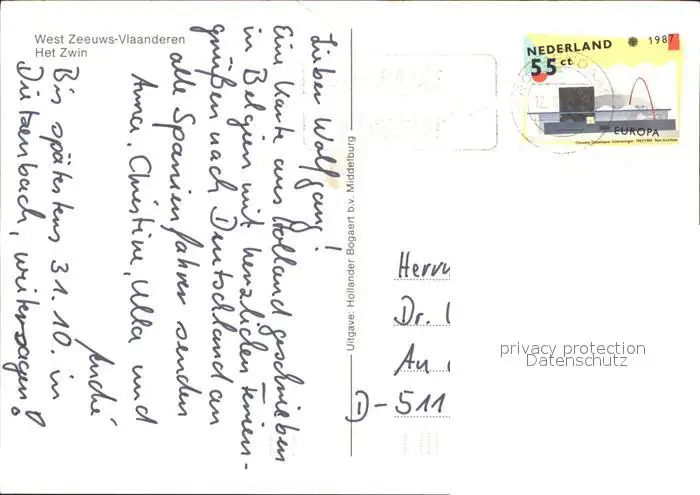 West Zeeuws-Vlaanderen
Het Zwin
Lieber Wolfgang!
Eine Karte aus Holland geschrieben
in Belgien mit herzlichen Ferien-
grüßen nach Deutschland an
alle Spanienfahrer senden
Anna, Christine, Ulla und
André
Bis spätestens 31.10. in
Dietzenbach, weitersagen!
Uitgave: Hollander Bogaert b.v. Middelburg
NEDERLAND 1987
55 ct
EUROPA
Herrn
Dr.
An
D-511
privacy protection
Datenschutz